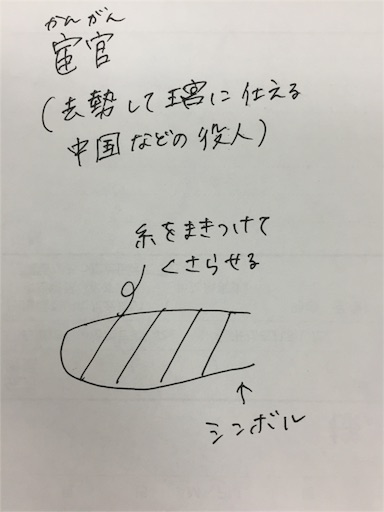 かんがん
宦官
(去勢して王宮に仕える
中国などの役人)
糸をまきつけて
くさらせる
シンボル